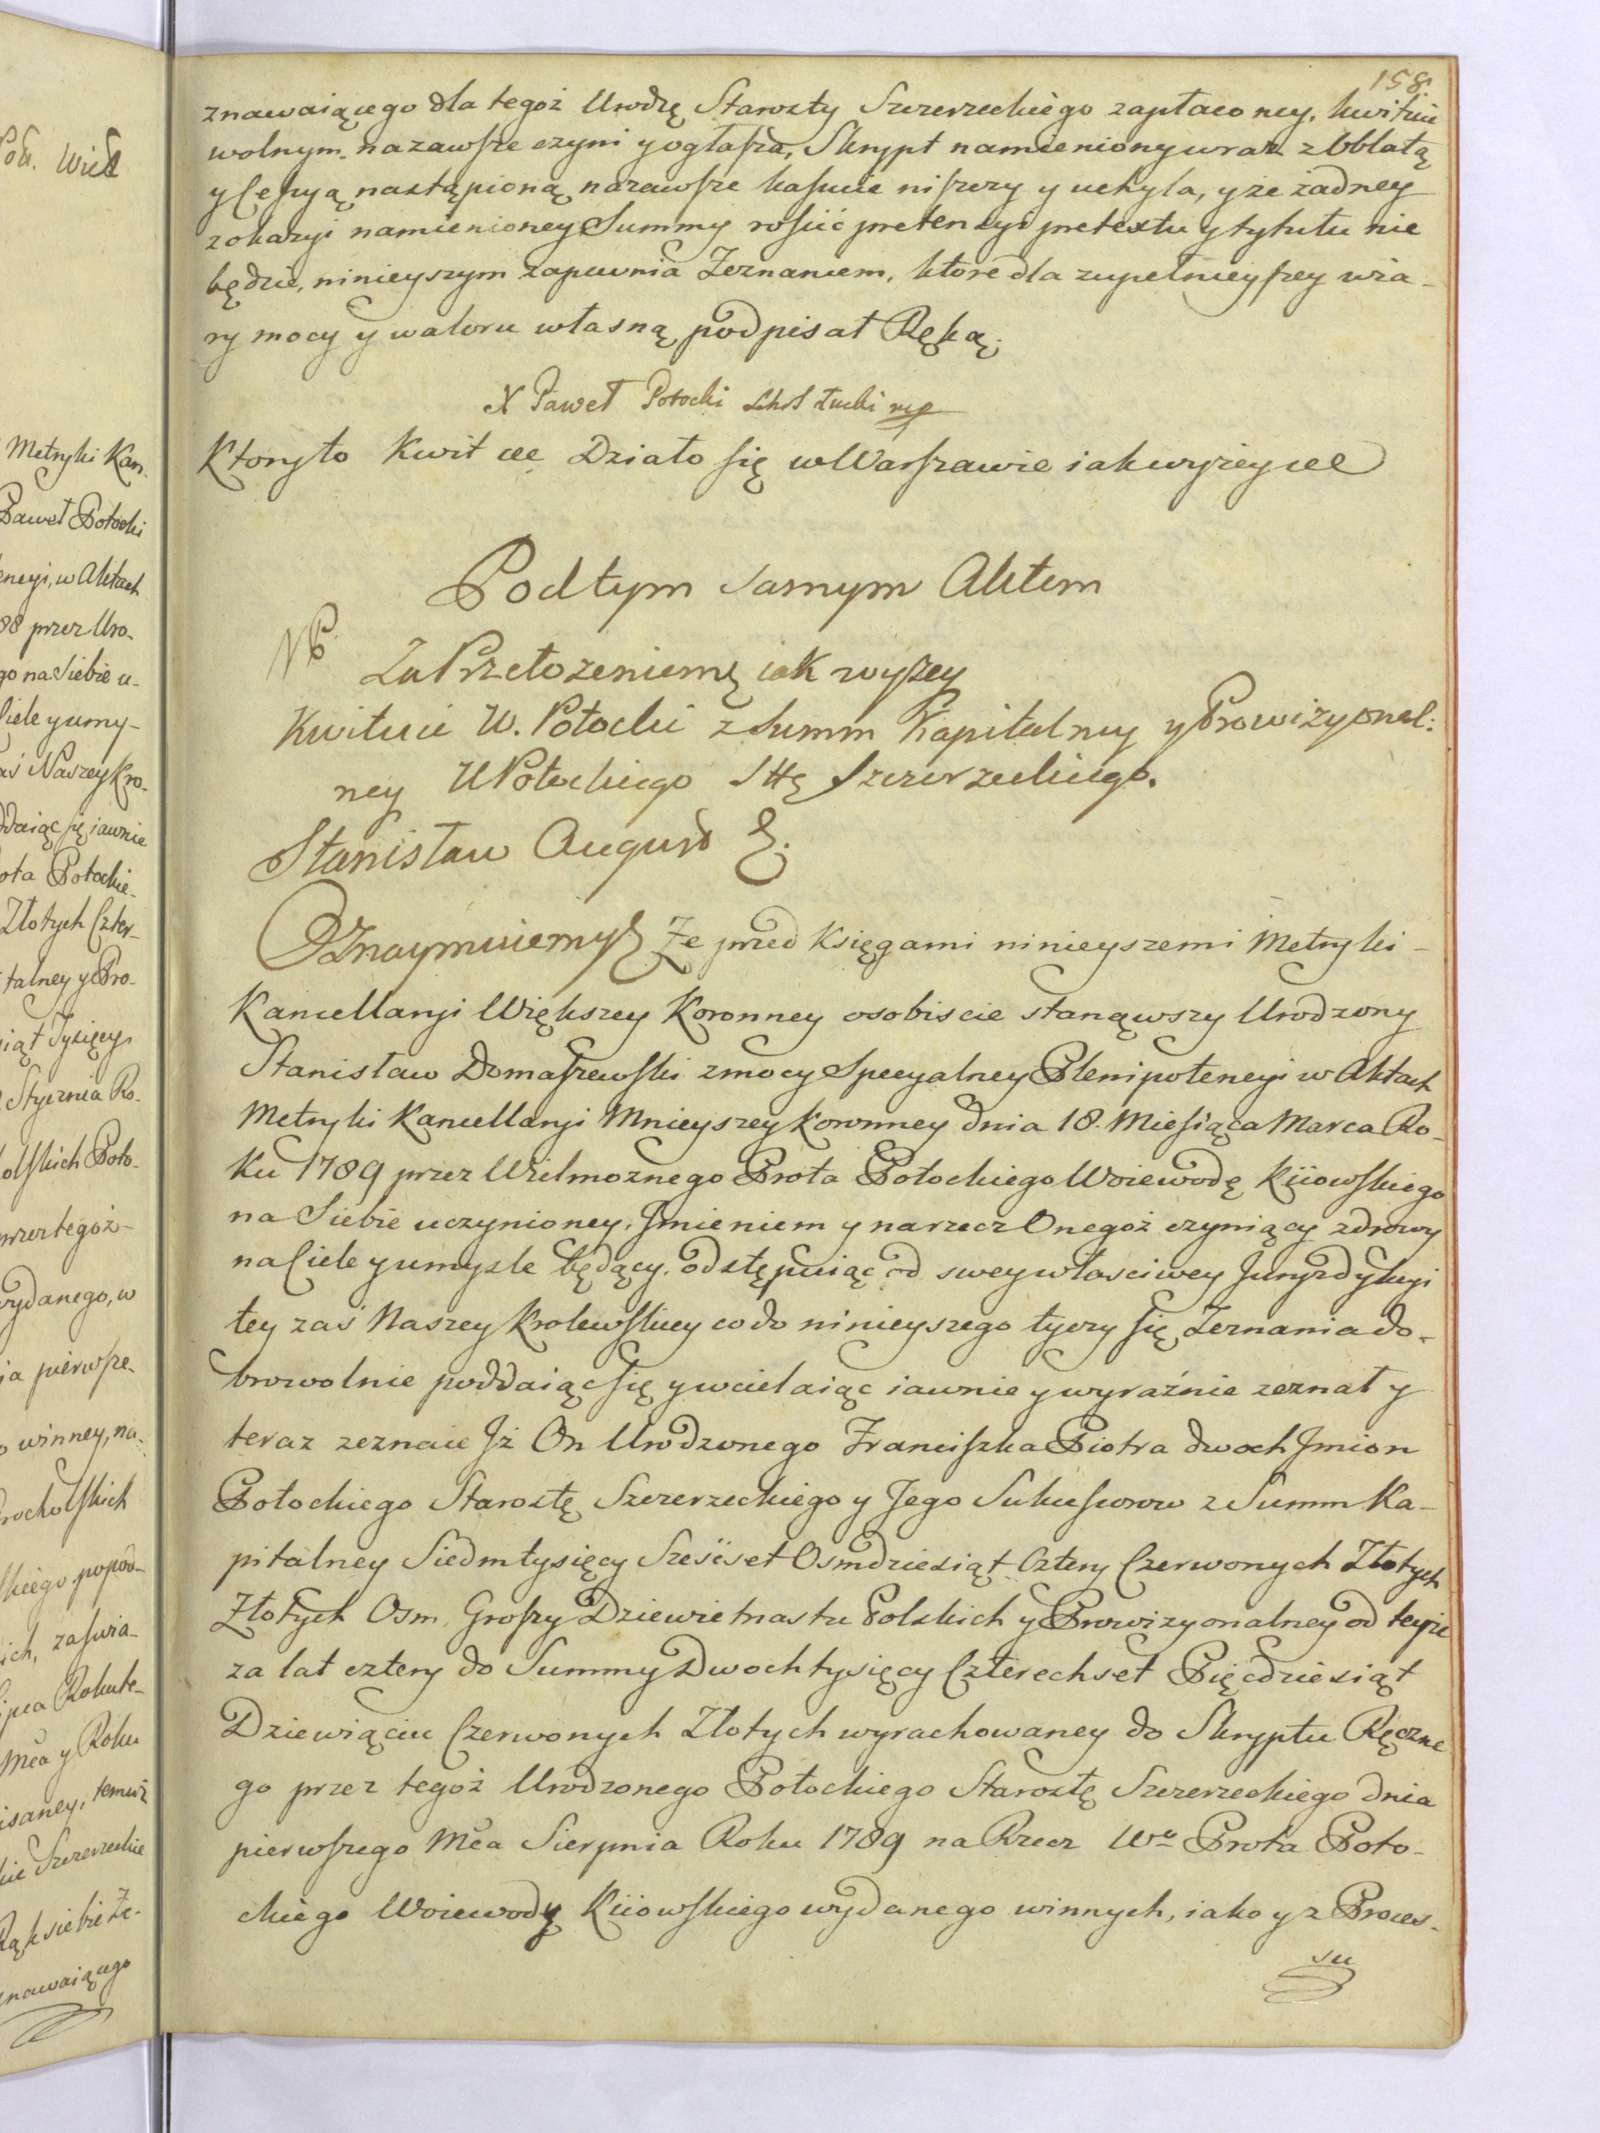 158.
znawaiącego dla tegoż Urodzę Starosty Szczerzeckiego zapłaconey, kwituie
wolnym na zawsze czyni y ogłasza, Skrypt namieniony wraz z Oblatą
y Cessyą nastąpioną na zawsze kassuie niszczy y uchyla, y że żadney
z okazyi namienioney Summy rościć pretensyi pretextu y tytułu nie
będzie, ninieyszym zapewnia Zeznaniem, ktore dla zupełnieyszey wia-
ry mocy y waloru własną podpisał Ręką.
X Paweł Potocki Schol Łucki mp
Ktory to Kwit &c Działo się w Warszawie iak wyżey &c
Pod tym samym Aktem
Za Przełożeniem iak wyżey
Kwituie W. Potocki z Summ Kapitalney y Prowizyonal:
ney U Potockiego Sttę Szczerzeckiego.
Stanisław August &.
Oznaymuiemy Że przed Księgami ninieyszemi Metryki
Kancellaryi Większey Koronney osobiscie stanąwszy Urodzony
Stanisław Domaszewski z mocy Specyalney Plenipotencyi w Aktach
Metryki Kancellaryi Mnieyszey Koronney dnia 18. Miesiąca Marca Ro-
ku 1789 przez Wielmożnego Prota Potockiego Woiewodę Kiiowskiego
na Siebie uczynioney, Jmieniem y na rzecz Onegoż czyniący zdrowy
na Ciele y umyśle będący, odstępuiąc od swey właściwey Juryzdykcyi
tey zaś Naszey Krolewskiey co do ninieyszego tyczy się Zeznania do-
browolnie poddaiąc się y wcielaiąc iawnie y wyraźnie zeznał y
teraz zeznaie Jż On Urodzonego Franciszka Piotra dwoch Jmion
Potockiego Starostę Szczerzeckiego y Jego Sukcessorow z Summ Ka-
pitalney Siedmtysięcy Sześćset Osmdziesiąt Cztery Czerwonych Złotych
Złotych Osm, Groszy Dziewietnastu Polskich y Prowizyonalney od teyże
za lat cztery do Summy Dwochtysięcy Czterechset Pięćdziesiąt
Dziewiąciu Czerwonych Złotych wyrachowaney do Skryptu Ręczne
go przez tegoż Urodzonego Potockiego Starostę Szczerzeckiego dnia
pierwszego Mca Sierpnia Roku 1789 na Rzecz Wo Prota Poto-
ckiego Woiewody Kiiowskiego wydanego winnych, iako y z Proces-
su